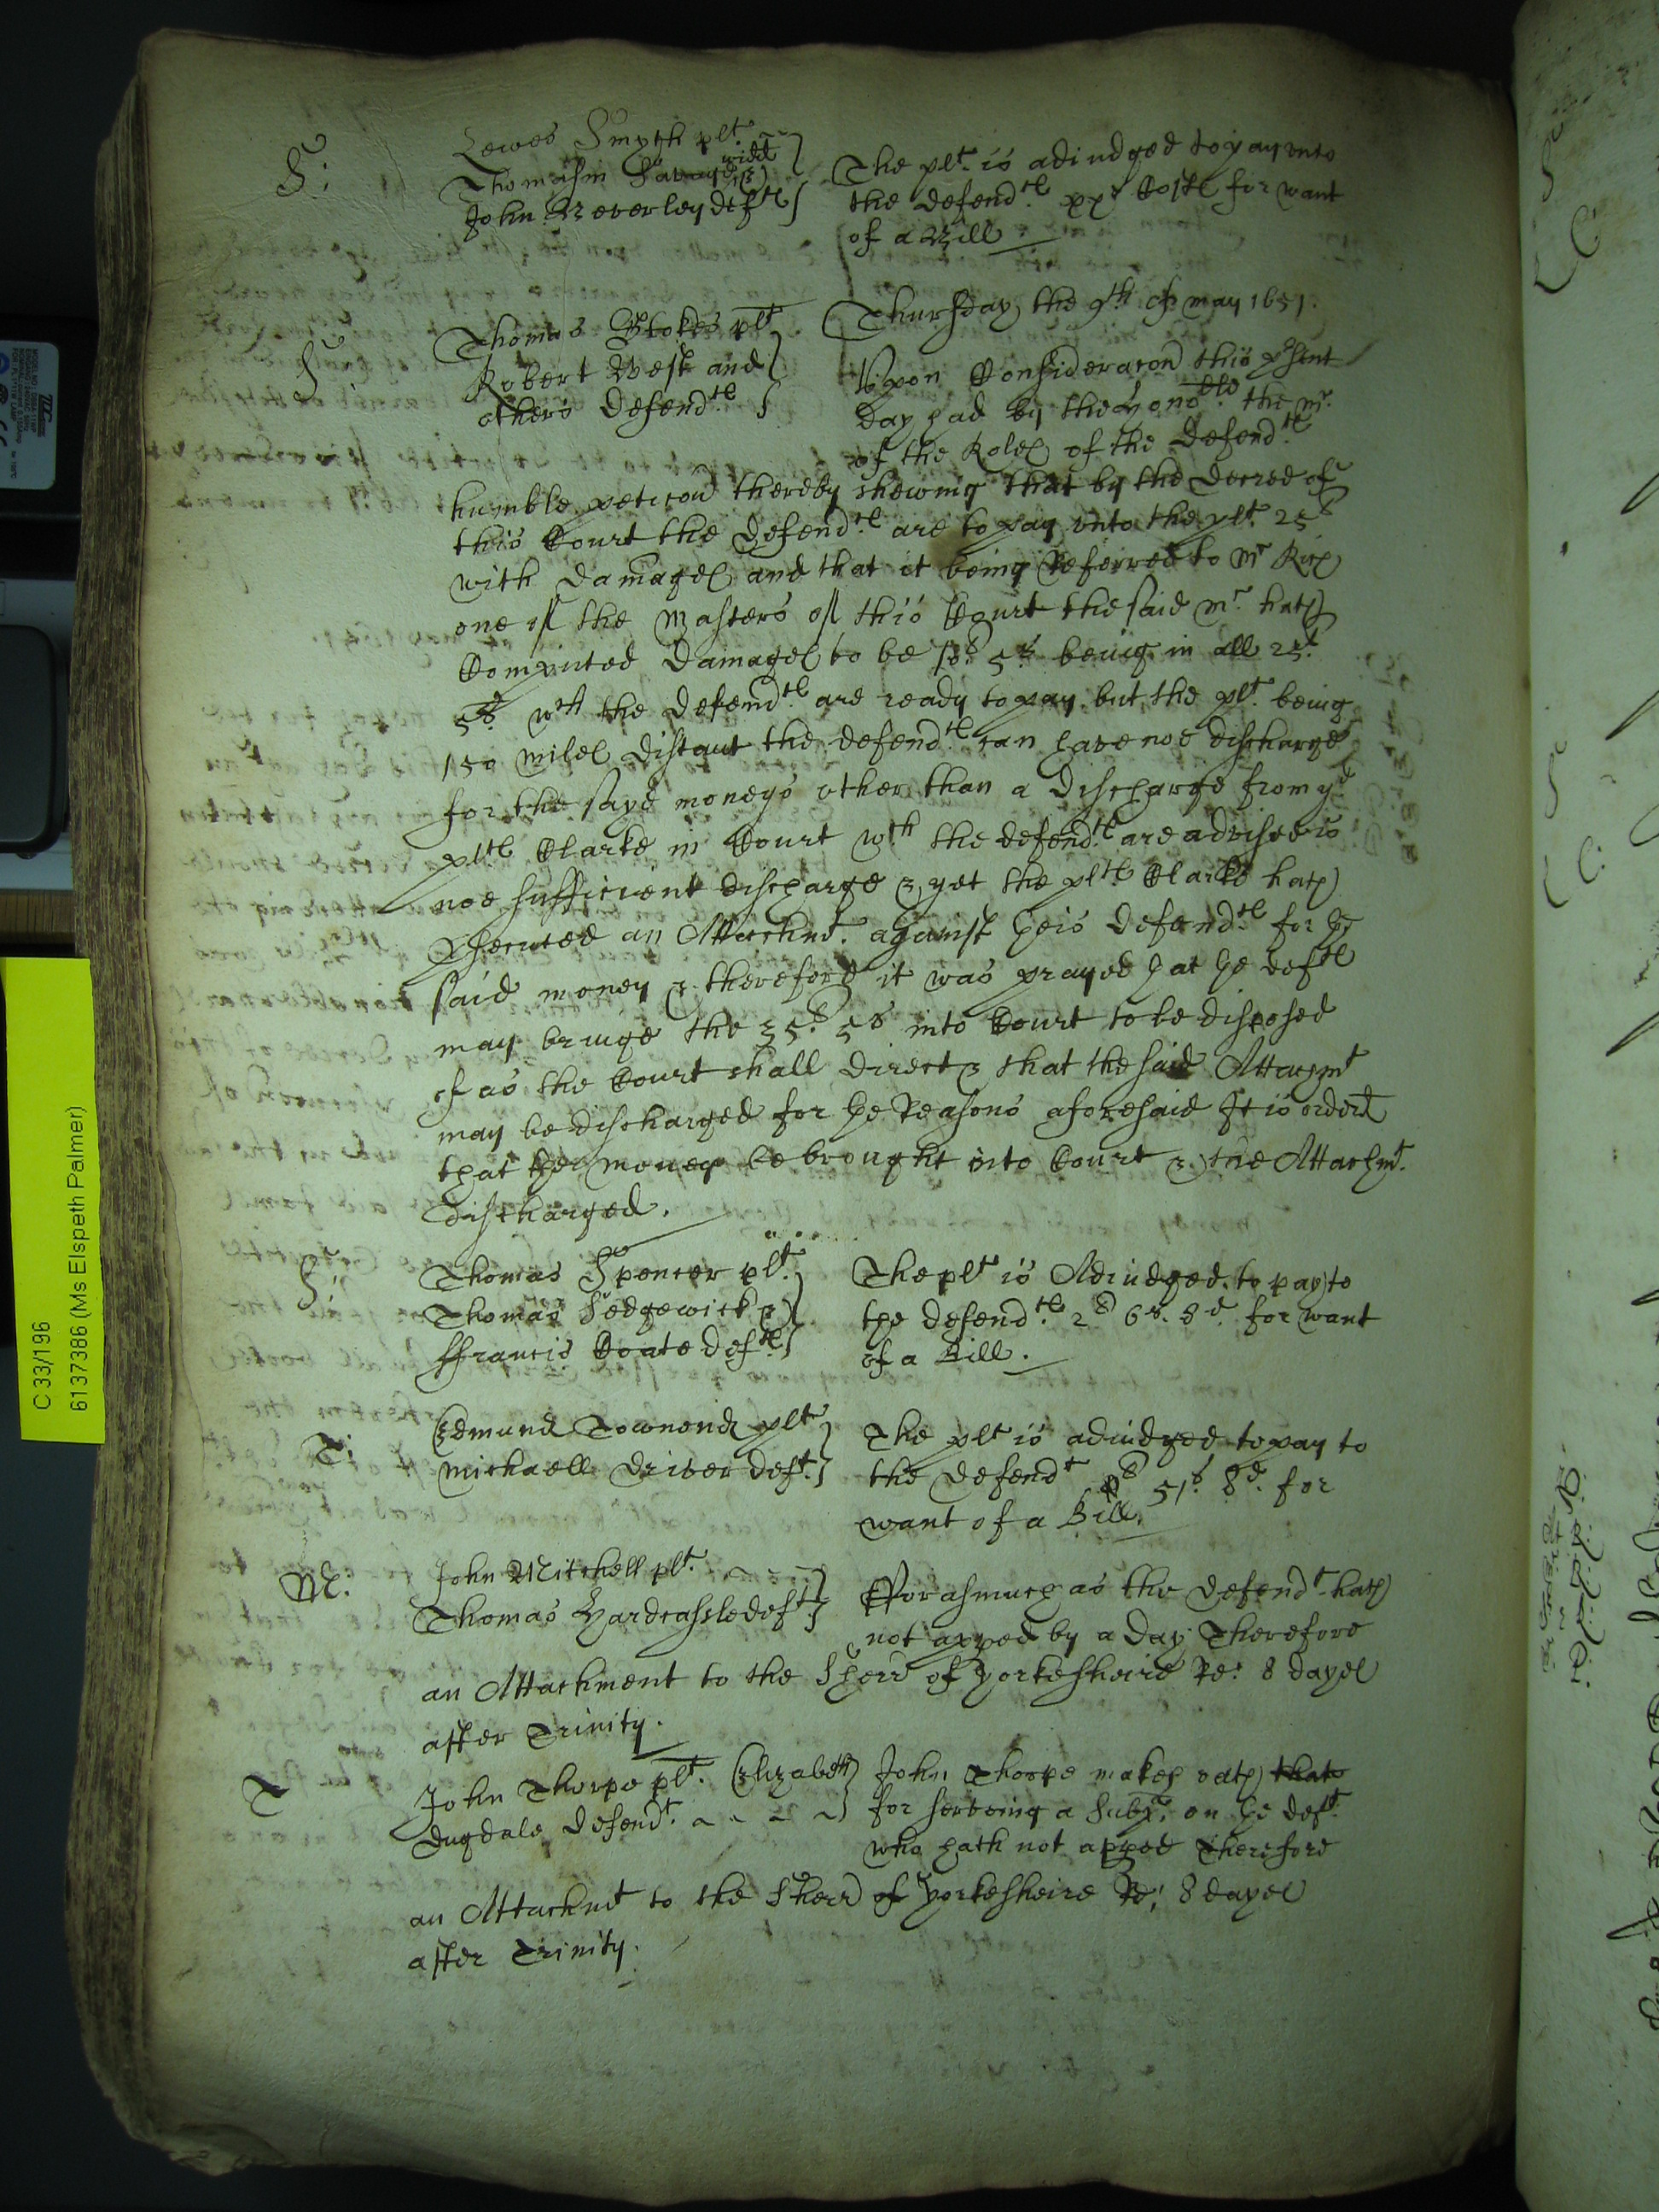 S:
Lewes Smyth plt.
Thomasin Savage widd &
John Beverley defts
The plt. is adiudged to pay unto
the defendts. xxs Costs for want
of a Bill.
Thursday the 9th of may 1651.
S:
Thomas Stokes plt
Robert West and
others defendts
Upon Consideracon this psent
day had by the Honoble. the mr.
of the Roles of the defendts
humble peticon thereby shewing that by the decree of
this Court the defendts. are to pay unto the plt. 25l
with damages and that it being Referred to Mr Rich
one of the Masters of this Court the said mr. hath
Computed damages to be 10l. 5s. being in all 35l.
5s. wch the defendts. are ready to pay but the plt. being
150 miles distant the defendts. can have noe discharge
for the sayd moneys other than a discharge from ye
plts. Clarke in Court wch the defendts. are advised is
noe sufficient discharge & yet the plts. Clarke hath
Executed an Attachmt. against yeis defendts. for ye
said money & therefore it was prayed yat ye defts
may bringe the 35l. 5s into Court to be disposed
of as the Court shall direct & that the said Attachmt
may be discharged for ye Reasons aforesaid It is orderd
that the money be brought into Court & the Attachmt.
discharged.
S:
Thomas Spencer plt.
Thomas Sedgewick &
ffrancis Coate defts.
The plt is Adiudged to pay to
the defendts. 2l 6s. 8d. for want
of a Bill.
T:
Edmund Townend plt
Michaell Driver deft.
The plt is adiudged to pay to
the defendt 51s. 8d. for
want of a Bill.
M:
John Mitchell plt.
Thomas Hardcastle deft.
Fforasmuch as the defendt. hath
not apped by a day Therefore
an Attachment to the Sherr of Yorkesheire Re: 8 dayes
after Trinity.
T
John Thorpe plt. Elizabeth
Dugdale defendt.
John Thorpe makes oath that
for serveing a Subp. on ye deft.
who hath not apped Therefore
an Attachmt to the Sherr of Yorkesheire Re: 8 dayes
after Trinity.
C 33/196
6137386 (Ms Elspeth Palmer)